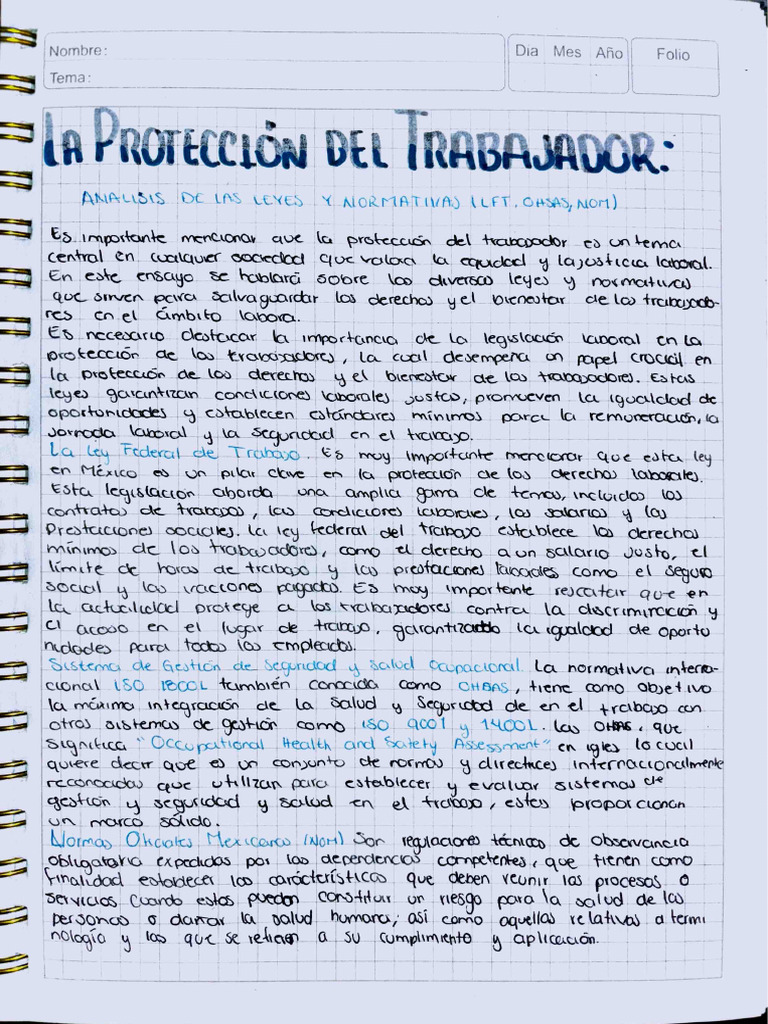 Nombre:
Tema:
Dia Mes Año
Folio
LA PROTECCIÓN DEL TRABAJADOR:
ANALISIS DE LAS LEYES Y NORMATIVAS (LFT, OHSAS, NOM)
Es importante mencionar que la protección del trabajador es un tema
central en cualquier sociedad que valora la equidad y la justicia laboral.
En este ensayo se hablará sobre las diversas leyes y normativas
que sirven para salvaguardar los derechos y el bienestar de los trabajado-
res en el ámbito labora.
Es necesario destacar la importancia de la legislación laboral en la
protección de los trabajadores, la cual desempeña un papel crucial en
la protección de los derechos y el bienestar de los trabajadores. Estas
leyes garantizan condiciones laborales justas, promueven la igualdad de
oportunidades y establecen estándares mínimos para la remuneración, la
jornada laboral y la seguridad en el trabajo.
La Ley Federal de Trabajo. Es muy importante mencionar que esta ley
en México es un pilar clave en la protección de los derechos laborales.
Esta legislación aborda una amplia gama de temas, incluidos los
contratos de trabajos, las condiciones laborales, los salarios y las
Prestaciones sociales. la ley federal del trabajo establece los derechos
mínimos de los trabajadores, como el derecho a un salario justo, el
límite de horas de trabajo y las prestaciones laborales como el seguro
social y las vacciones pagadas. Es muy importante rescatar que en
la actualidad protege a los trabajadores contra la discriminación y
el acoso en el lugar de trabajo, garantizando la igualdad de oporto
nidades para todos los empleados.
Sistema de Gestión de Seguridad y Salud Ocupacional. La normativa interna-
cional ISO 18001 también conocida como OHSAS, tiene como objetivo
la máxima integración de la Salud y Seguridad de en el trabajo con
otros sistemas de gestión como ISO 9001 y 14001. Las OHSAS, que
significa "Occupational Health and Safety Assessment" en igles lo cual
quiere decir que es un conjunto de normas y directrices internacionalmente
reconocidas que utilizan para establecer y evaluar sistemas de
gestión y seguridad y salud en el trabajo, estes proporcionan
un marco sólido.
Normas Oficiales Mexicanas (NOM) Son regulaciones técnicas de observancia
obligatoria expedidas por las dependencias competentes, que tienen como
finalidad establecer las carácterísticas que deben reunir los procesos o
servicios cuando estos puedan constituir un riesgo para la salud de las
personas o dañar la salud humana; asi como aquellas relativas a termi
nología y las que se refieran a su cumplimiento y aplicación.